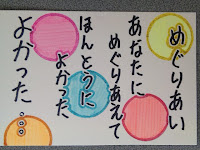 めぐりあい
あなたに
めぐりあえて
ほんとうに
よかった
よかった・・・